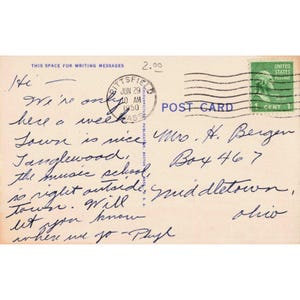 THIS SPACE FOR WRITING MESSAGES
2.00
Hi —
We're only
here a week
Town is nice
Tanglewood,
the music school
is right outside
town. Will
let you know
where we go — Phyl
PITTSFIELD
JUN 29
10 AM
1950
MASS.
UNITED STATES
1 CENT 1
POST CARD
Mrs. H. Bergen
Box 467
Middletown,
Ohio